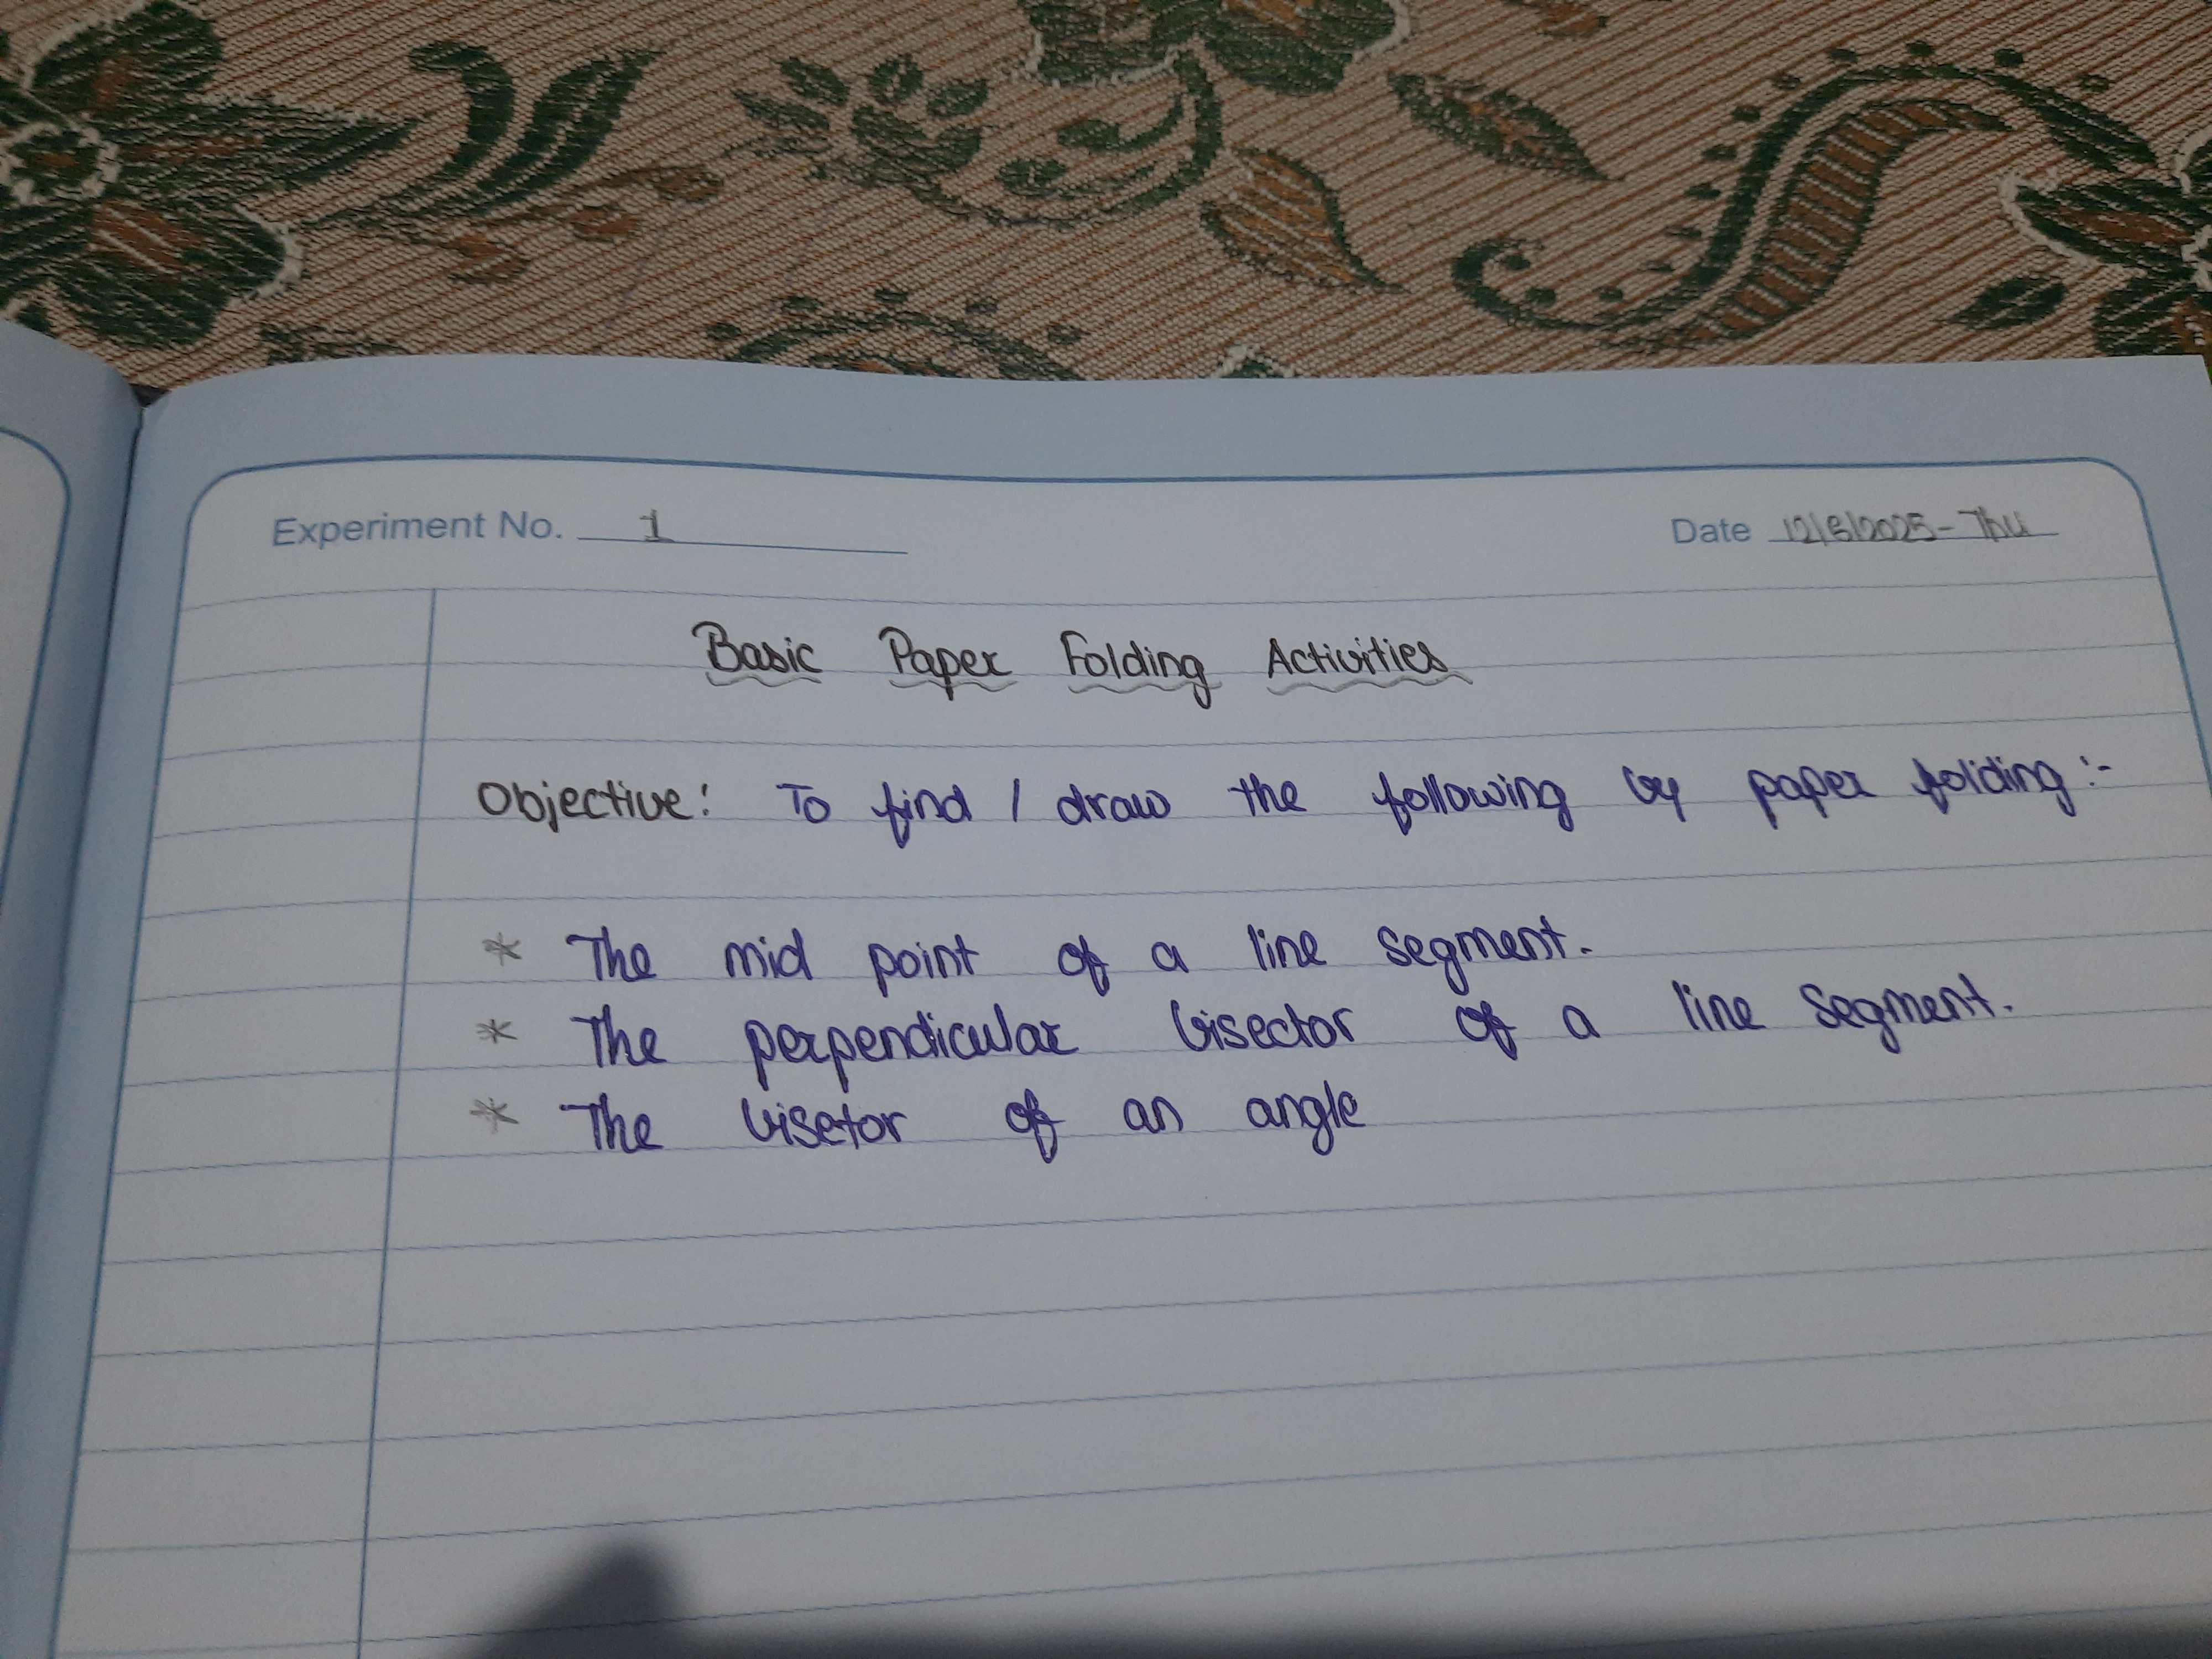 Experiment No. 1
Date 12/6/2025 - Thu
Basic Paper Folding Activities
Objective: To find / draw the following by paper folding :-
* The mid point of a line segment.
* The perpendicular bisector of a line segment.
* The bisetor of an angle